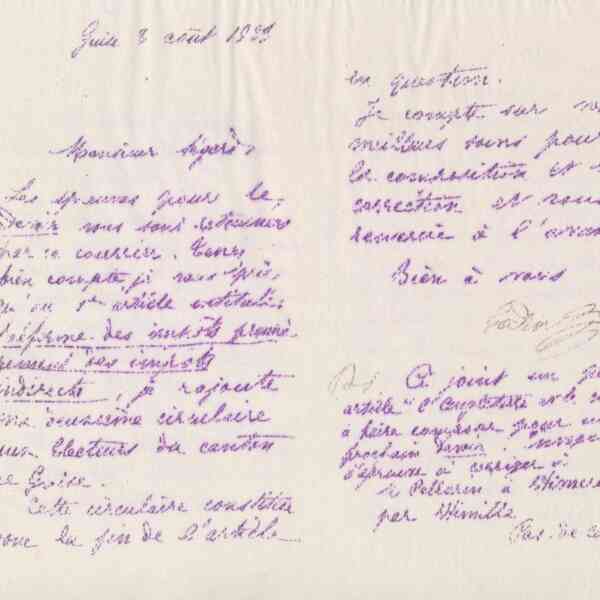 Guise 8 août 18
Monsieur
Les épreuves pour le
Devoir vous sont retournées
par ce courrier. Tenez
bien compte je vous prie,
qu'au 1er article intitulé:
réforme des impôts, premiè-
rement des impôts
indirects, je rajoute
ma onzième circulaire
aux Electeurs du canton
de Guise.
Cette circulaire constitue
donc la fin de l'article
en question.
Je compte sur vos
meilleurs soins pour
la composition et
correction et vous
remercie à l'avance
Bien à vous
Godin
PS Ci joint un
article
à faire composer pour
prochain Devoir.
d'épreuve à corriger à
Pellerin à
par
Pas de